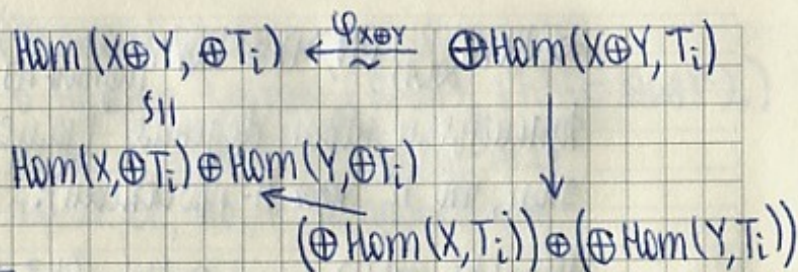 Hom(X⊕Y, ⊕Tᵢ) ←∼ φ_{X⊕Y} ⊕Hom(X⊕Y, Tᵢ)
≅
Hom(X,⊕Tᵢ)⊕Hom(Y,⊕Tᵢ)
(⊕Hom(X,Tᵢ))⊕(⊕Hom(Y,Tᵢ))